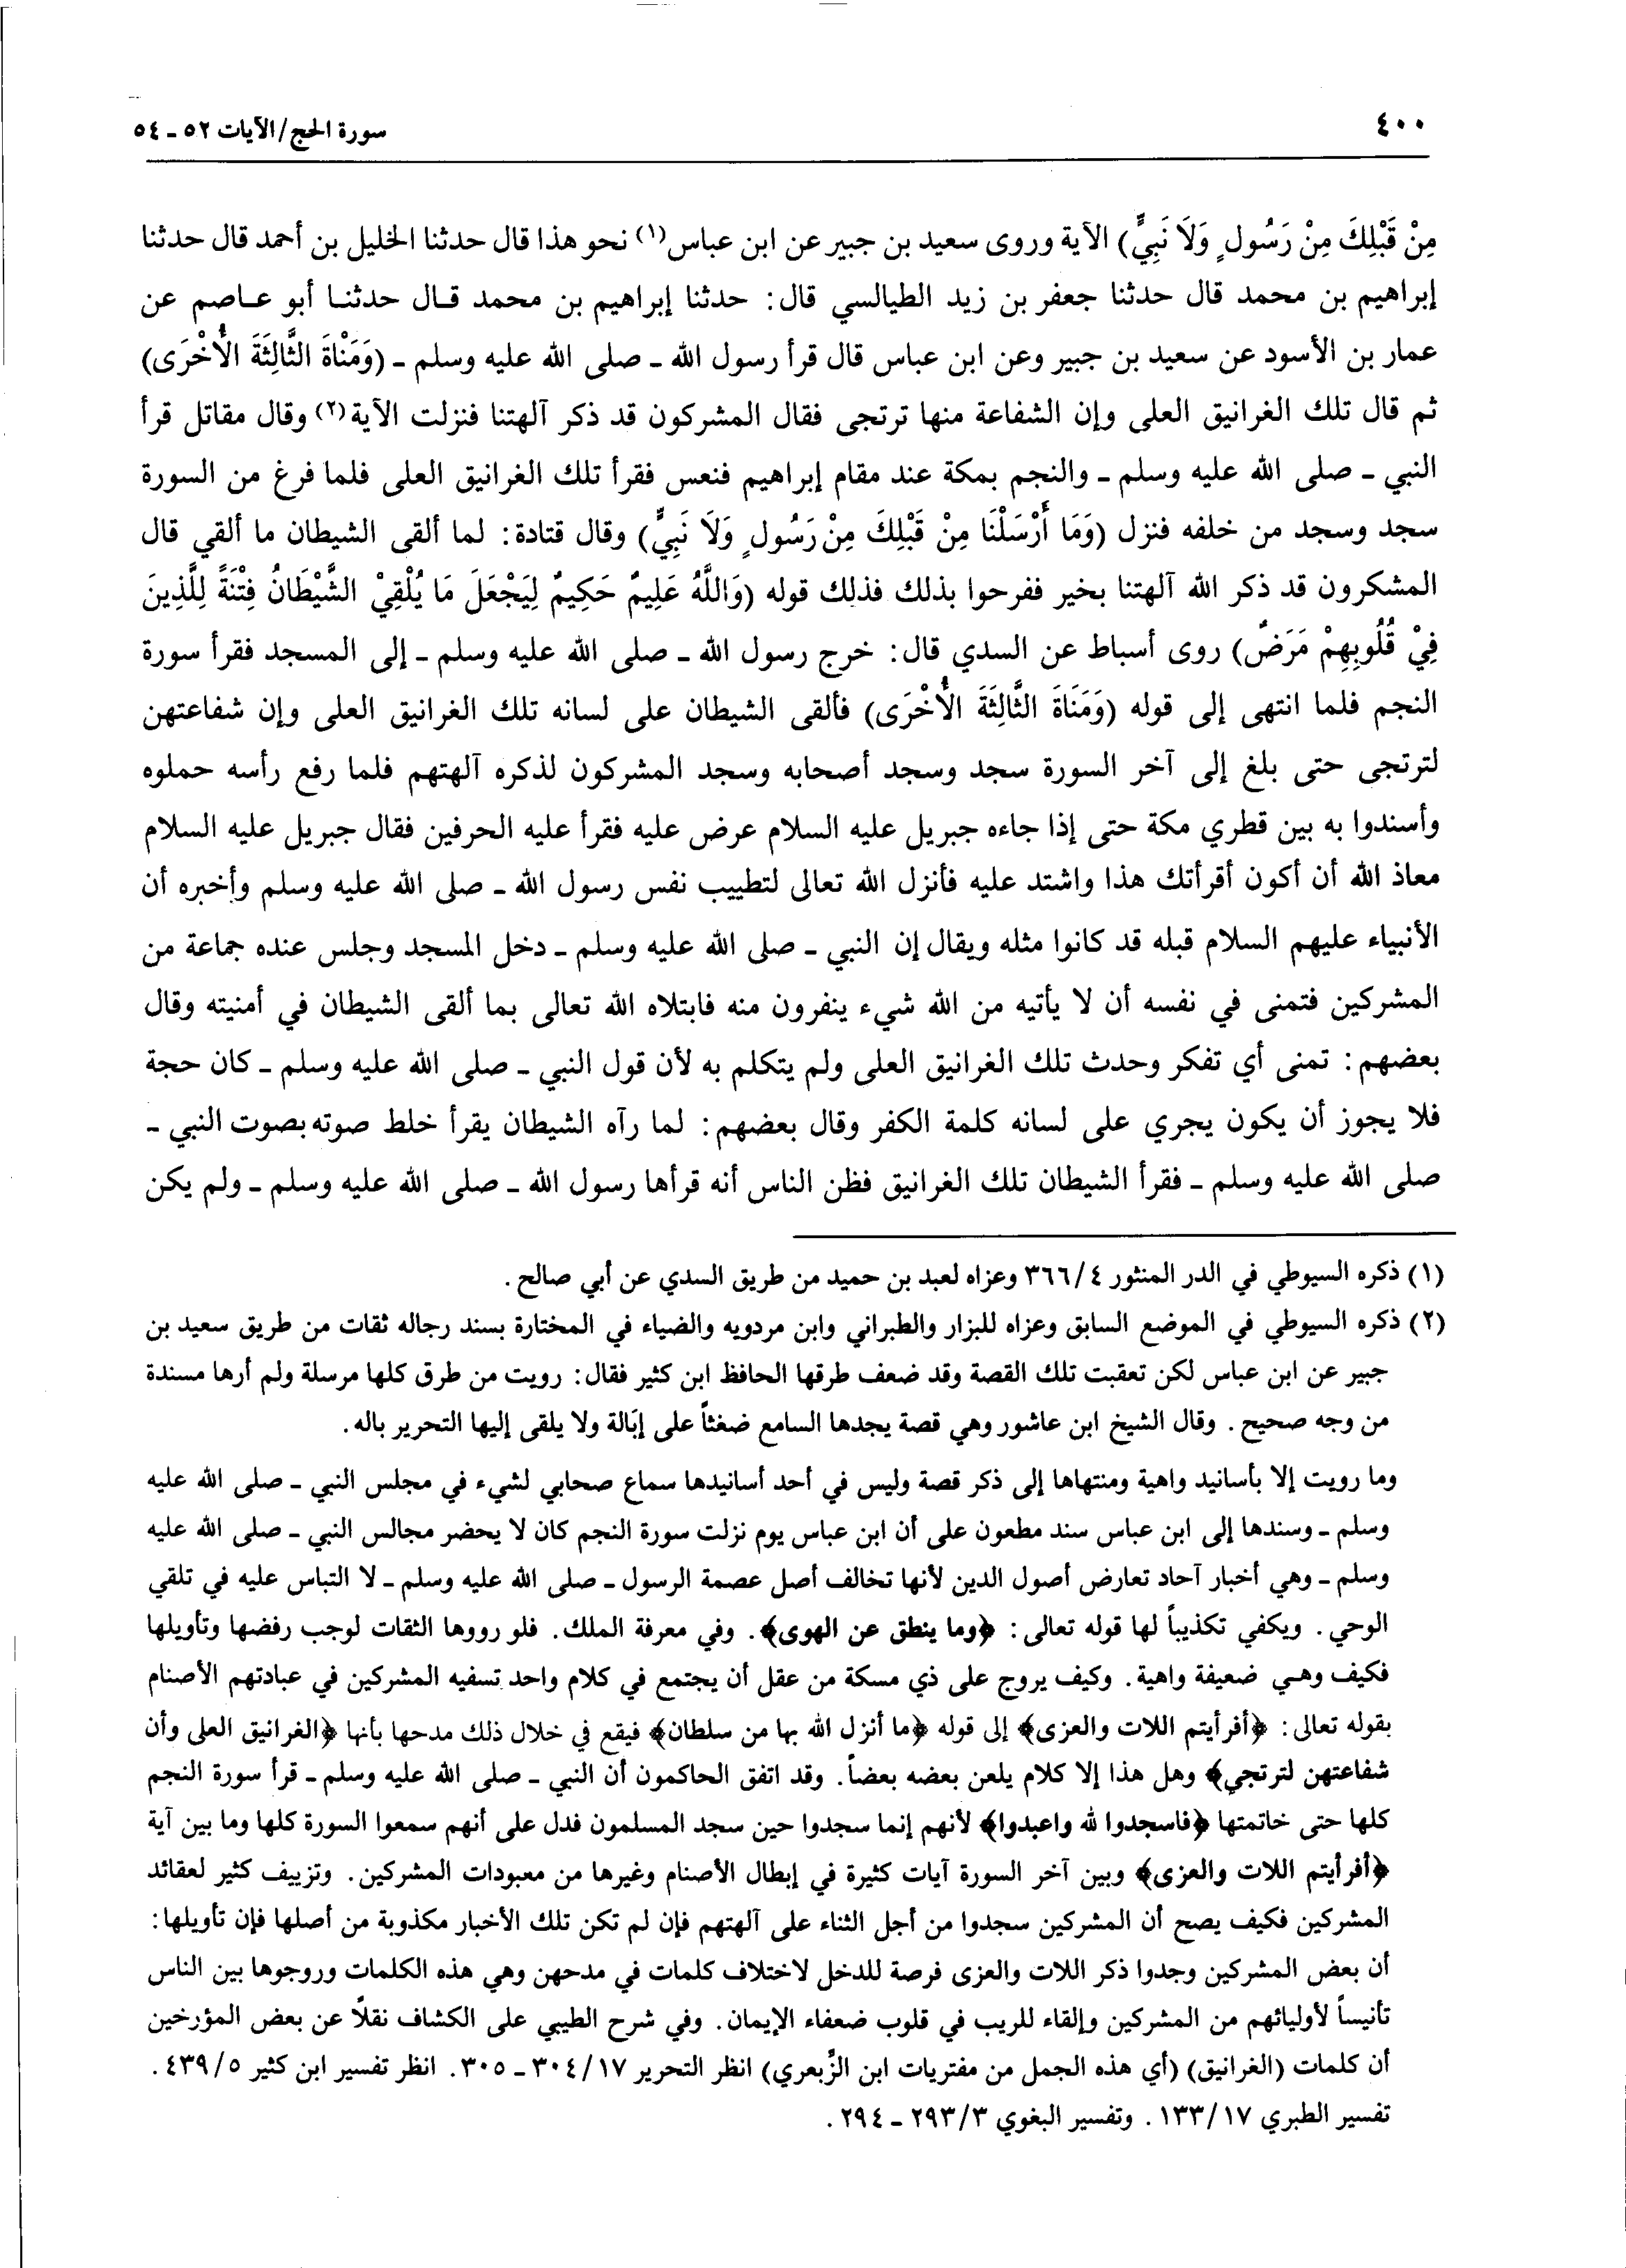 ٤٠٠
سورة الحج/الآيات ٥٢ - ٥٤
مِنْ قَبْلِكَ مِنْ رَسُولٍ وَلَا نَبِيٍّ) الآية وروى سعيد بن جبير عن ابن عباس(١) نحو هذا قال حدثنا الخليل بن أحمد قال حدثنا
إبراهيم بن محمد قال حدثنا جعفر بن زيد الطيالسي قال: حدثنا إبراهيم بن محمد قال حدثنا أبو عاصم عن
عمار بن الأسود عن سعيد بن جبير وعن ابن عباس قال قرأ رسول الله - صلى الله عليه وسلم - (وَمَنْاةَ الثَّالِثَةَ الأُخْرَى)
ثم قال تلك الغرانيق العلى وإن الشفاعة منها ترتجى فقال المشركون قد ذكر آلهتنا فنزلت الآية(٢) وقال مقاتل قرأ
النبي - صلى الله عليه وسلم - والنجم بمكة عند مقام إبراهيم فنعس فقرأ تلك الغرانيق العلى فلما فرغ من السورة
سجد وسجد من خلفه فنزل (وَمَا أَرْسَلْنَا مِنْ قَبْلِكَ مِنْ رَسُولٍ وَلَا نَبِيٍّ) وقال قتادة: لما ألقى الشيطان ما ألقي قال
المشكرون قد ذكر الله آلهتنا بخير ففرحوا بذلك فذلك قوله (وَاللَّهُ عَلِيمٌ حَكِيمٌ لِيَجْعَلَ مَا يُلْقِيْ الشَّيْطَانُ فِتْنَةً لِلَّذِينَ
فِيْ قُلُوبِهِمْ مَرَضٌ) روى أسباط عن السدي قال: خرج رسول الله - صلى الله عليه وسلم - إلى المسجد فقرأ سورة
النجم فلما انتهى إلى قوله (وَمَنَاةَ الثَّالِثَةَ الأُخْرَى) فألقى الشيطان على لسانه تلك الغرانيق العلى وإن شفاعتهن
لترتجى حتى بلغ إلى آخر السورة سجد وسجد أصحابه وسجد المشركون لذكره آلهتهم فلما رفع رأسه حملوه
وأسندوا به بين قطري مكة حتى إذا جاءه جبريل عليه السلام عرض عليه فقرأ عليه الحرفين فقال جبريل عليه السلام
معاذ الله أن أكون أقرأتك هذا واشتد عليه فأنزل الله تعالى لتطييب نفس رسول الله - صلى الله عليه وسلم وأخبره أن
الأنبياء عليهم السلام قبله قد كانوا مثله ويقال إن النبي - صلى الله عليه وسلم - دخل المسجد وجلس عنده جماعة من
المشركين فتمنى في نفسه أن لا يأتيه من الله شيء ينفرون منه فابتلاه الله تعالى بما ألقى الشيطان في أمنيته وقال
بعضهم: تمنى أي تفكر وحدث تلك الغرانيق العلى ولم يتكلم به لأن قول النبي - صلى الله عليه وسلم - كان حجة
فلا يجوز أن يكون يجري على لسانه كلمة الكفر وقال بعضهم: لما رآه الشيطان يقرأ خلط صوته بصوت النبي -
صلى الله عليه وسلم - فقرأ الشيطان تلك الغرانيق فظن الناس أنه قرأها رسول الله - صلى الله عليه وسلم - ولم يكن
(١) ذكره السيوطي في الدر المنثور ٣٦٦/٤ وعزاه لعبد بن حميد من طريق السدي عن أبي صالح.
(٢) ذكره السيوطي في الموضع السابق وعزاه للبزار والطبراني وابن مردويه والضياء في المختارة بسند رجاله ثقات من طريق سعيد بن
جبير عن ابن عباس لكن تعقبت تلك القصة وقد ضعف طرقها الحافظ ابن كثير فقال: رويت من طرق كلها مرسلة ولم أرها مسندة
من وجه صحيح. وقال الشيخ ابن عاشور وهي قصة يجدها السامع ضغثاً على إبَالة ولا يلقى إليها التحرير باله.
وما رويت إلا بأسانيد واهية ومنتهاها إلى ذكر قصة وليس في أحد أسانيدها سماع صحابي لشيء في مجلس النبي - صلى الله عليه
وسلم - وسندها إلى ابن عباس سند مطعون على أن ابن عباس يوم نزلت سورة النجم كان لا يحضر مجالس النبي - صلى الله عليه
وسلم - وهي أخبار آحاد تعارض أصول الدين لأنها تخالف أصل عصمة الرسول - صلى الله عليه وسلم - لا التباس عليه في تلقي
الوحي. ويكفي تكذيباً لها قوله تعالى: ﴿وما ينطق عن الهوى﴾. وفي معرفة الملك. فلو رووها الثقات لوجب رفضها وتأويلها
فكيف وهي ضعيفة واهية. وكيف يروج على ذي مسكة من عقل أن يجتمع في كلام واحد تسفيه المشركين في عبادتهم الأصنام
بقوله تعالى: ﴿أفرأيتم اللات والعزى﴾ إلى قوله ﴿ما أنزل الله بها من سلطان﴾ فيقع في خلال ذلك مدحها بأنها ﴿الغرانيق العلى وأن
شفاعتهن لترتجي﴾ وهل هذا إلا كلام يلعن بعضه بعضاً. وقد اتفق الحاكمون أن النبي - صلى الله عليه وسلم - قرأ سورة النجم
كلها حتى خاتمتها ﴿فاسجدوا لله واعبدوا﴾ لأنهم إنما سجدوا حين سجد المسلمون فدل على أنهم سمعوا السورة كلها وما بين آية
﴿أفرأيتم اللات والعزى﴾ وبين آخر السورة آيات كثيرة في إبطال الأصنام وغيرها من معبودات المشركين. وتزييف كثير لعقائد
المشركين فكيف يصح أن المشركين سجدوا من أجل الثناء على آلهتهم فإن لم تكن تلك الأخبار مكذوبة من أصلها فإن تأويلها:
أن بعض المشركين وجدوا ذكر اللات والعزى فرصة للدخل لاختلاف كلمات في مدحهن وهي هذه الكلمات وروجوها بين الناس
تأنيساً لأوليائهم من المشركين وإلقاء للريب في قلوب ضعفاء الإيمان. وفي شرح الطيبي على الكشاف نقلاً عن بعض المؤرخين
أن كلمات (الغرانيق) (أي هذه الجمل من مفتريات ابن الزِّبعري) انظر التحرير ٣٠٤/١٧ - ٣٠٥. انظر تفسير ابن كثير ٤٣٩/٥.
تفسير الطبري ١٣٣/١٧. وتفسير البغوي ٢٩٣/٣ - ٢٩٤.